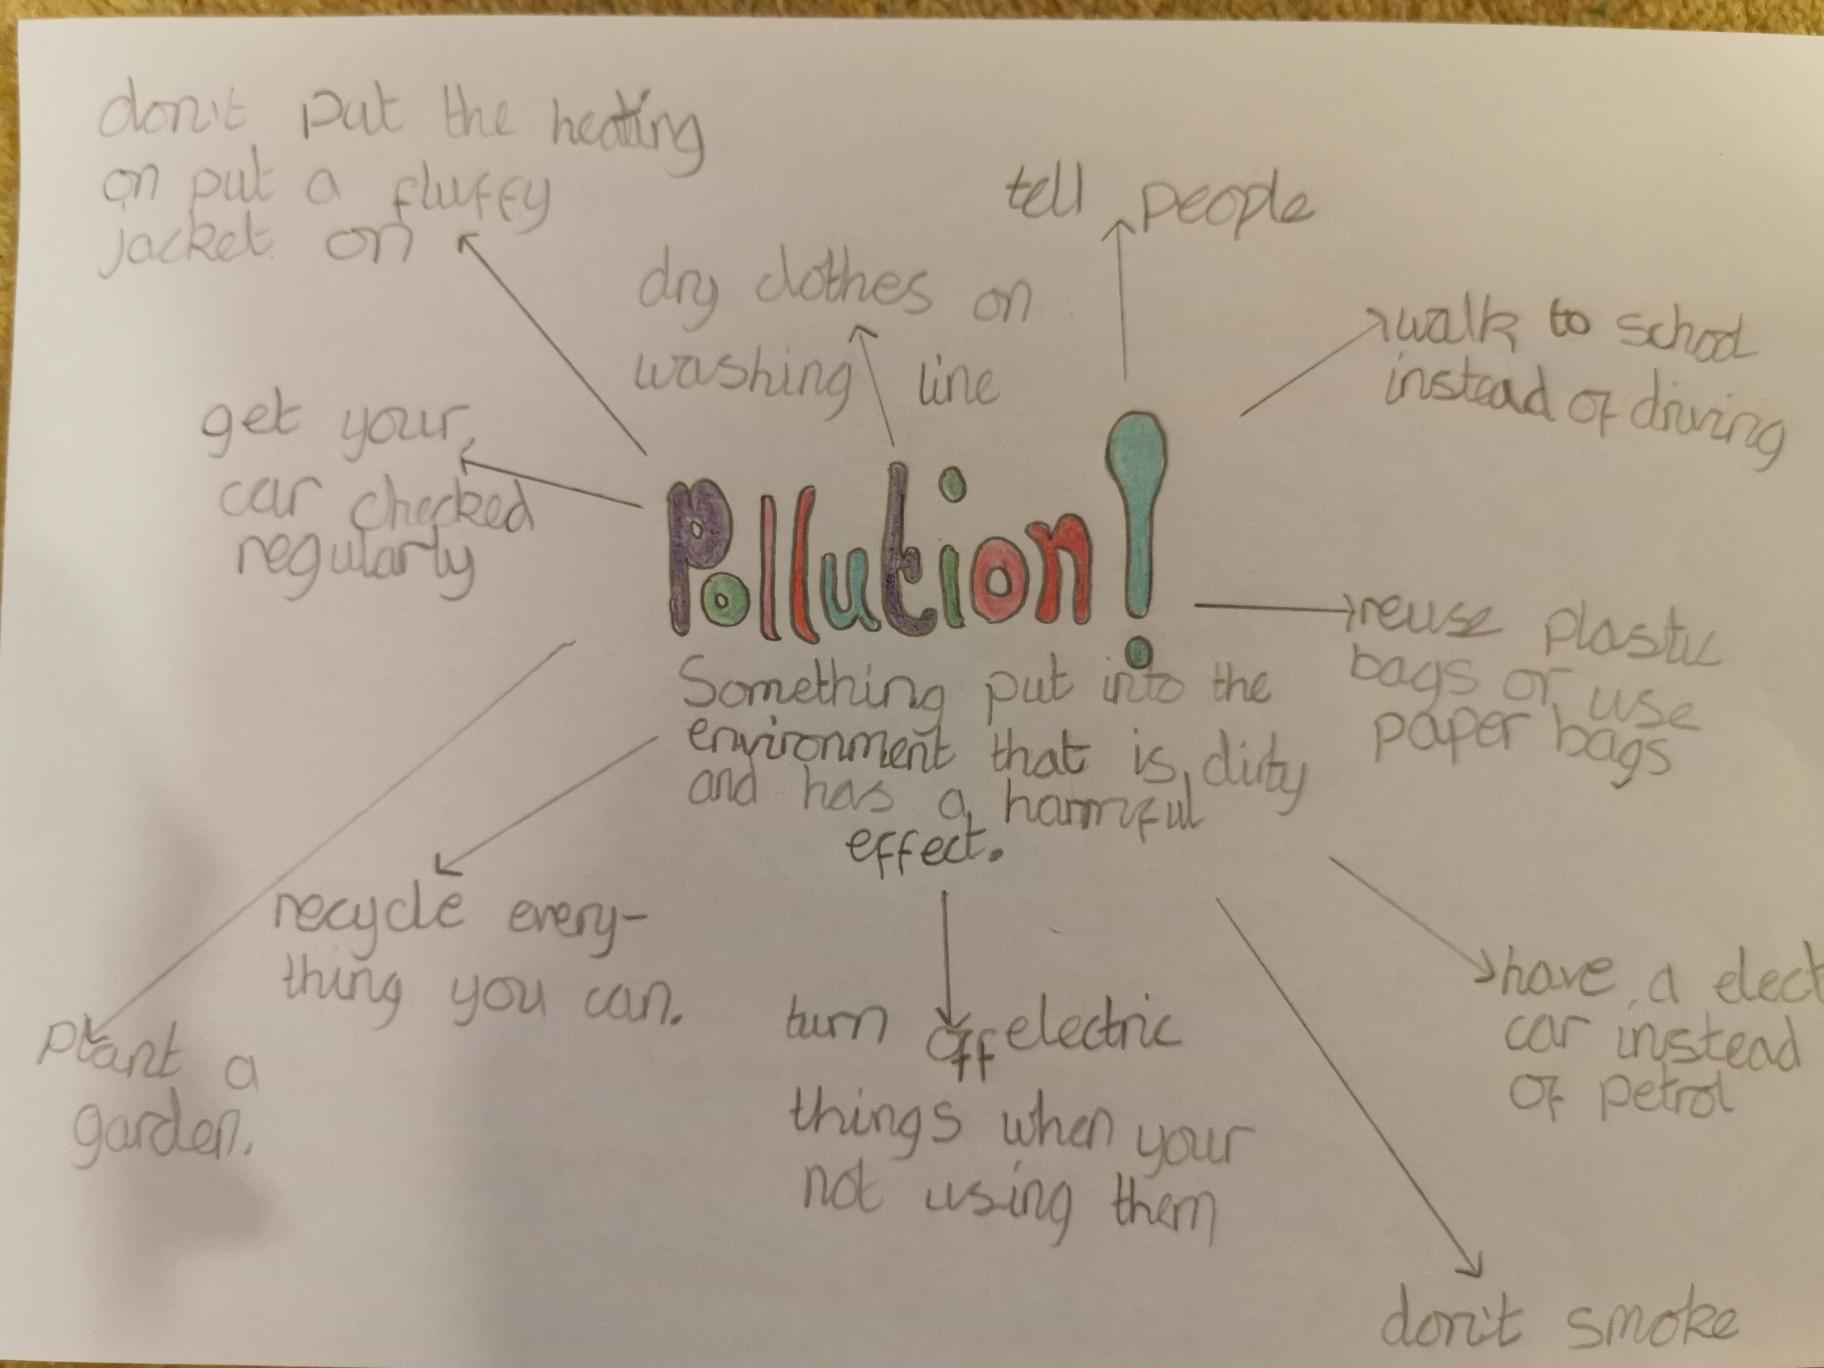 don't put the heating
on put a fluffy
jacket on
tell people
dry clothes on
washing line
walk to school
instead of driving
get your
car checked
regularly
Pollution!
Something put into the
environment that is dirty
and has a harmful
effect.
reuse plastic
bags or use
paper bags
recycle every-
thing you can.
have a elect
car instead
of petrol
plant a
garden.
turn off electric
things when your
not using them
don't smoke